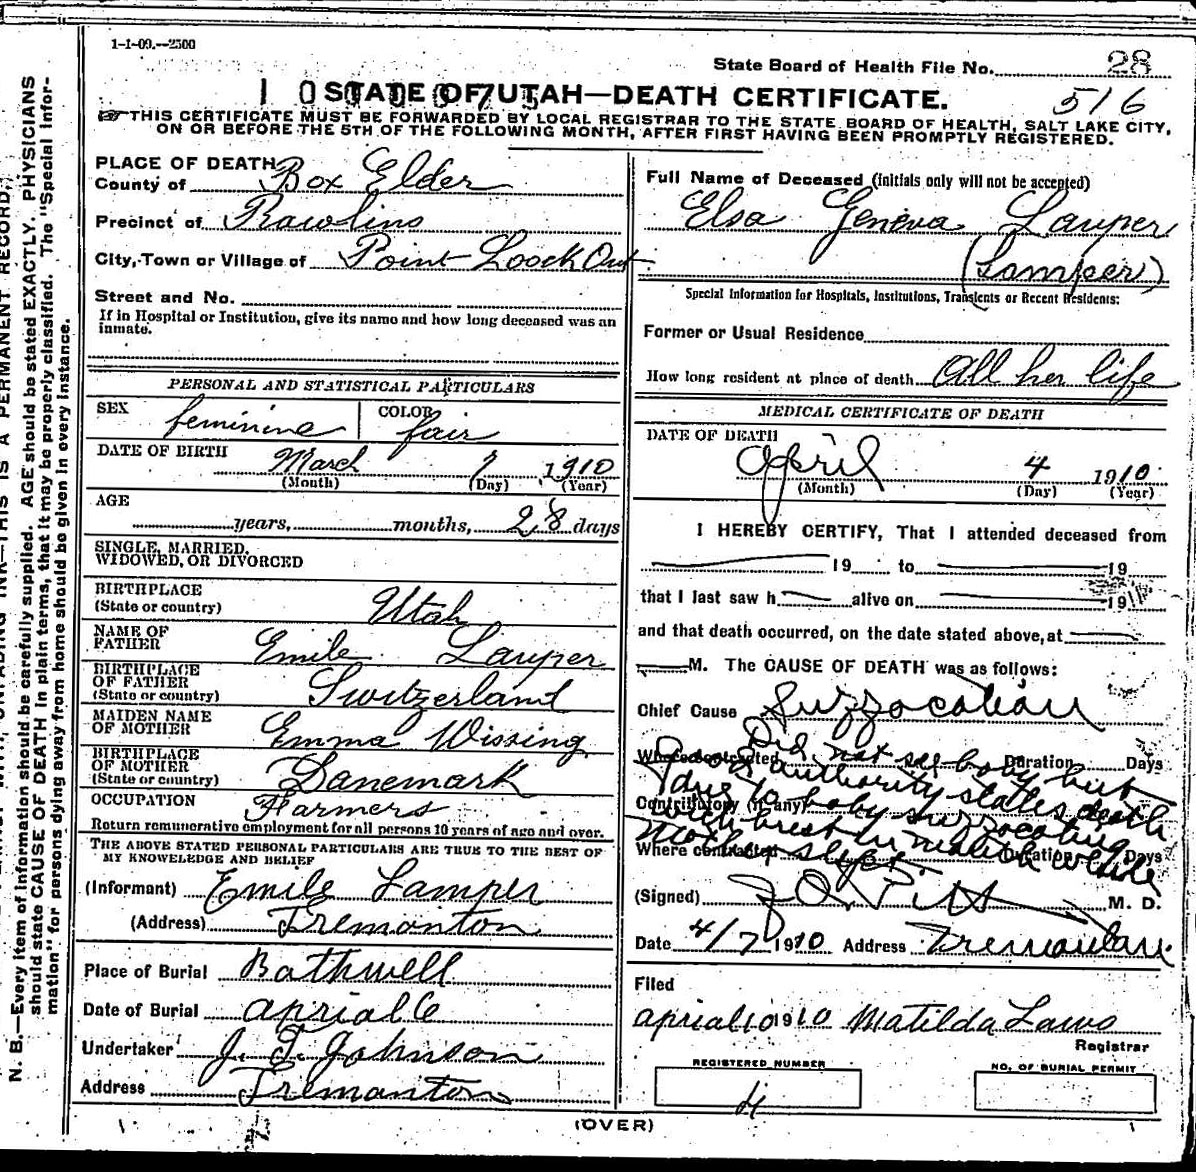 1-1-09.—2500
State Board of Health File No. 28
STATE OF UTAH—DEATH CERTIFICATE.
516
THIS CERTIFICATE MUST BE FORWARDED BY LOCAL REGISTRAR TO THE STATE BOARD OF HEALTH, SALT LAKE CITY,
ON OR BEFORE THE 5TH OF THE FOLLOWING MONTH, AFTER FIRST HAVING BEEN PROMPTLY REGISTERED.
PLACE OF DEATH
County of Box Elder
Precinct of Rawlins
City, Town or Village of Point Loock Out
Street and No.
If in Hospital or Institution, give its name and how long deceased was an
inmate.
PERSONAL AND STATISTICAL PARTICULARS
SEX feminine COLOR fair
DATE OF BIRTH March 7 1910
(Month) (Day) (Year)
AGE
years, months, 28 days
SINGLE, MARRIED,
WIDOWED, OR DIVORCED
BIRTHPLACE
(State or country) Utah
NAME OF
FATHER Emile Lauper
BIRTHPLACE
OF FATHER
(State or country) Switzerland
MAIDEN NAME
OF MOTHER Emma Wissing
BIRTHPLACE
OF MOTHER
(State or country) Danemark
OCCUPATION Farmers
Return remunerative employment for all persons 10 years of age and over.
THE ABOVE STATED PERSONAL PARTICULARS ARE TRUE TO THE BEST OF
MY KNOWLEDGE AND BELIEF
(Informant) Emile Lamper
(Address) Tremonton
Place of Burial Bothwell
Date of Burial aprial 6
Undertaker J. F. Johnson
Address Tremonton
Full Name of Deceased (initials only will not be accepted)
Elsa Geneva Lauper
(Lamper)
Special Information for Hospitals, Institutions, Transients or Recent Residents:
Former or Usual Residence
How long resident at place of death All her life
MEDICAL CERTIFICATE OF DEATH
DATE OF DEATH
April 4 1910
(Month) (Day) (Year)
I HEREBY CERTIFY, That I attended deceased from
19 to 19
that I last saw h alive on 19
and that death occurred, on the date stated above, at
M. The CAUSE OF DEATH was as follows:
Chief Cause Suffocation
Where contracted Duration Days
Did not see baby but
good authority states death
Contributory (if any)
due to baby suffocating
with brest in mouth while
Where contracted Duration Days
Mother slept.
(Signed) M. D.
Date 4/7 1910 Address Tremonton
Filed
aprial 10 1910 Matilda Laws
Registrar
REGISTERED NUMBER
4
NO. OF BURIAL PERMIT
(OVER)
N. B.—Every item of information should be carefully supplied. AGE should be stated EXACTLY. PHYSICIANS
should state CAUSE OF DEATH in plain terms, that it may be properly classified. The "Special Infor-
mation" for persons dying away from home should be given in every instance.
THIS IS A PERMANENT RECORD.